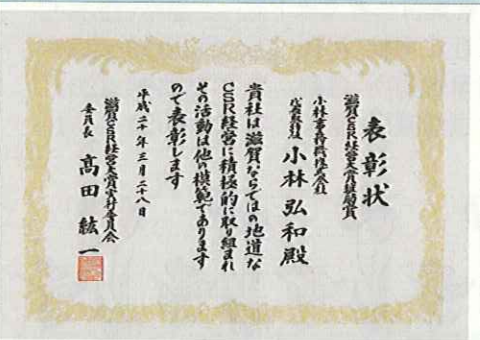 表彰状
滋賀CSR経営大賞奨励賞
小林事務機株式会社
代表取締役 小林弘和殿
貴社は滋賀ならではの地道な
CSR経営に積極的に取り組まれ
その活動は他の模範であります
ので表彰します
平成二十年三月二十八日
滋賀CSR経営大賞実行委員会
委員長 髙田紘一